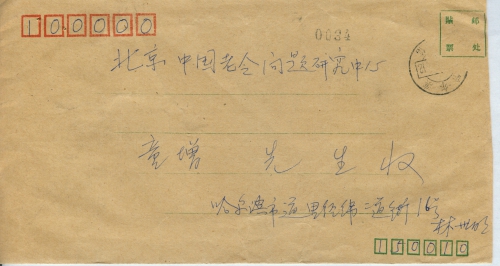 100000
0034
贴邮
票处
北京中国老令问题研究中心
童增 先生收
哈尔滨市道里经纬二道街16号
林世明
150010